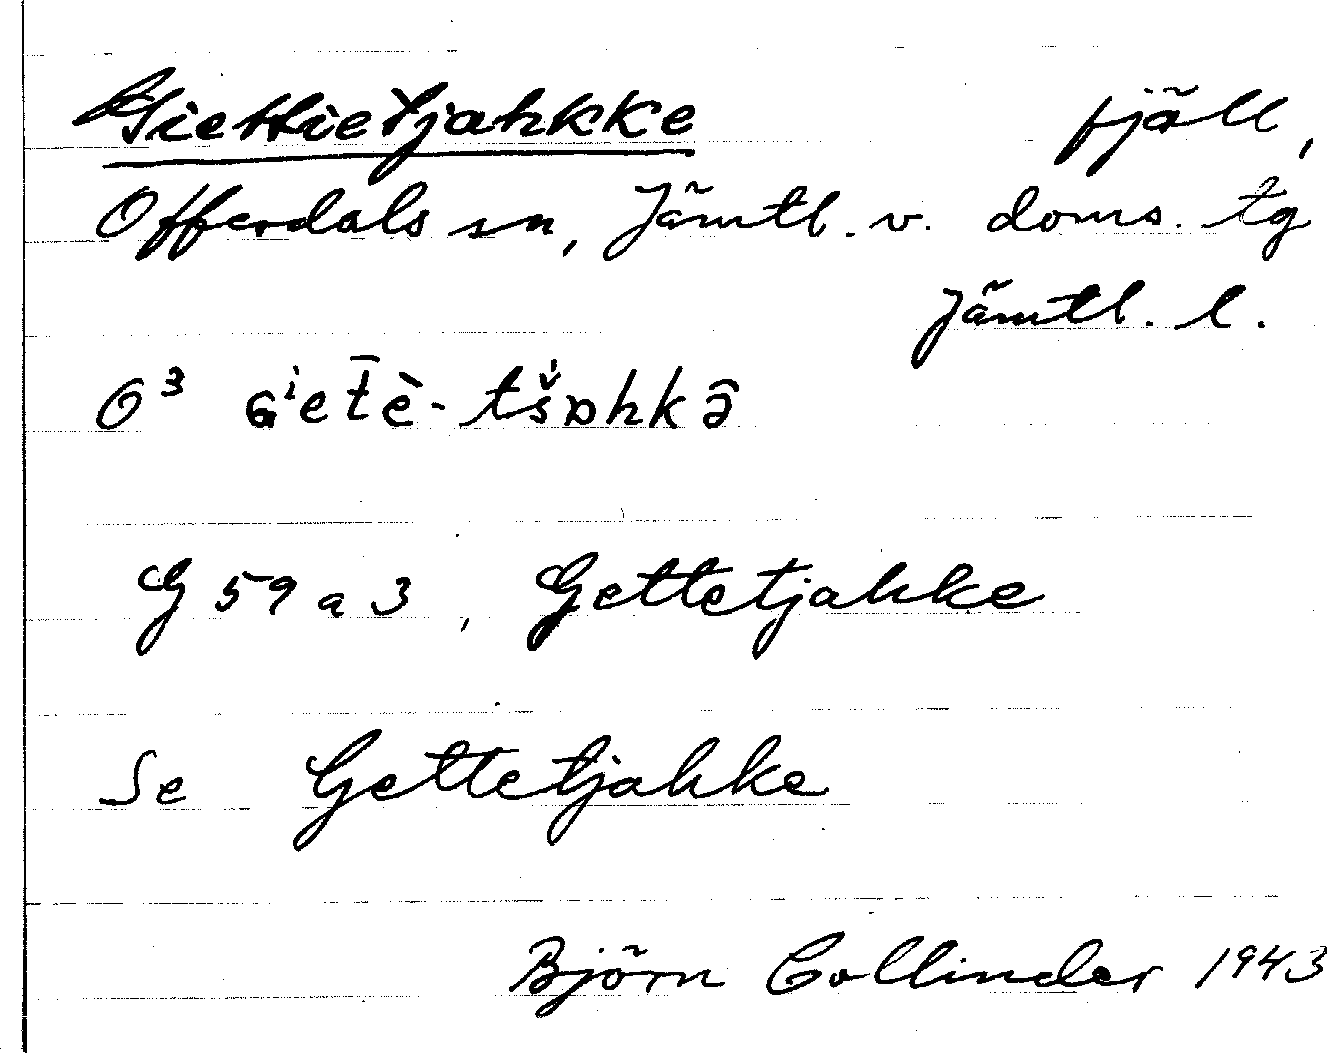 Giettietjahkke fjäll,
Offerdals sn, Jämtl. v. doms. tg
Jämtl. l.
O³ ɢⁱet̄è-tš́ɒhkə̂
G 59 a 3, Gettetjahke
Se Gettetjahke
Björn Collinder 1943